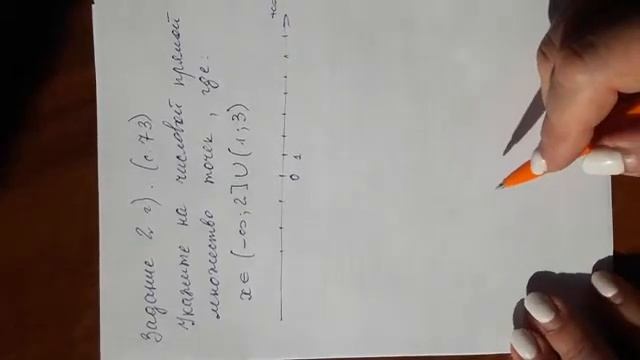 Задание 2, г). (с. 73)
Укажите на числовой прямой
множество точек, где:
x ∈ (-∞; 2] ∪ (1; 3)
0 1
+∞